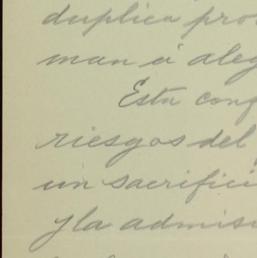 duplica pro
man a aleg
Esta conf
riesgos del
un sacrifici
y la admisi